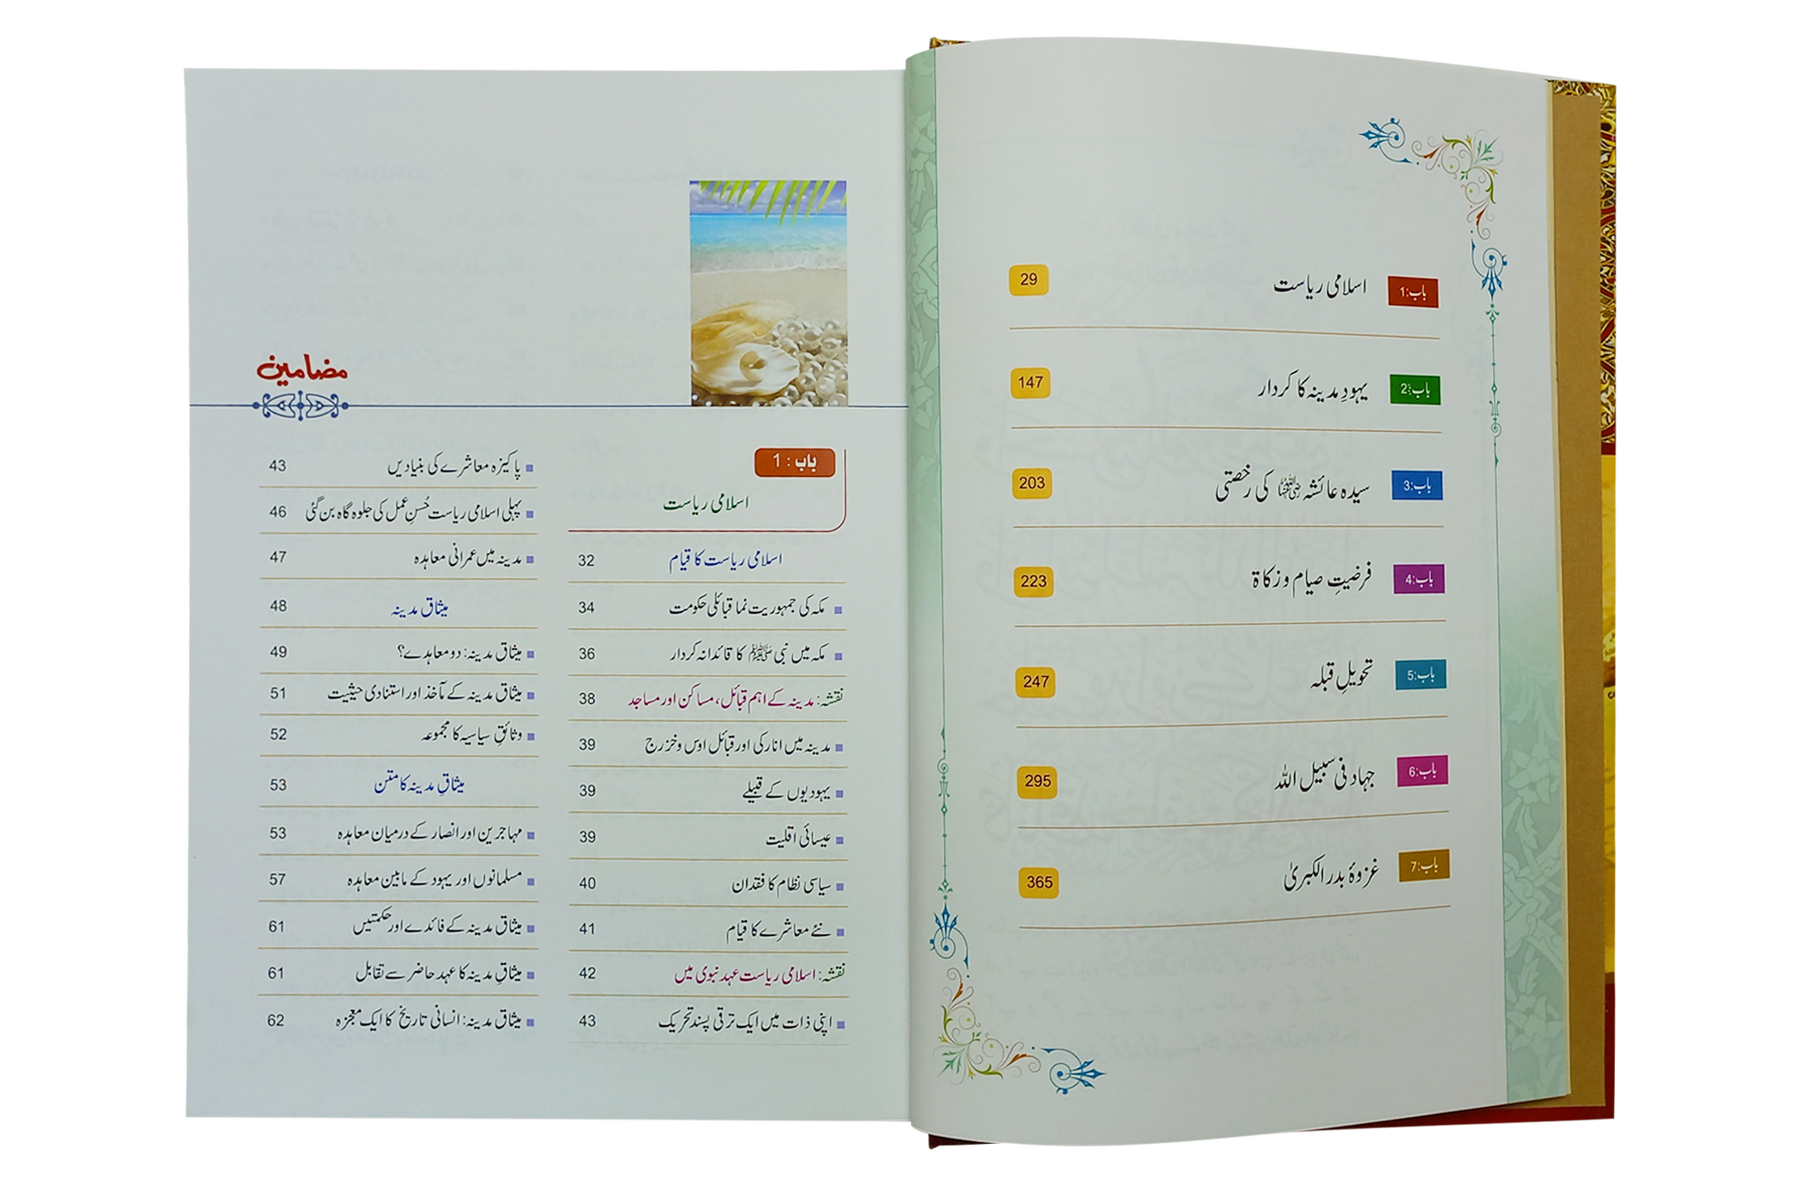 باب:1 اسلامی ریاست 29
باب:2 یہودِ مدینہ کا کردار 147
باب:3 سیدہ عائشہ رضی اللہ عنہا کی رخصتی 203
باب:4 فرضیتِ صیام و زکاۃ 223
باب:5 تحویلِ قبلہ 247
باب:6 جہاد فی سبیل اللہ 295
باب:7 غزوۂ بدر الکبریٰ 365
مضامین
باب : 1
اسلامی ریاست
اسلامی ریاست کا قیام 32
مکہ کی جمہوریت نما قبائلی حکومت 34
مکہ میں نبی ﷺ کا قائدانہ کردار 36
نقشہ: مدینہ کے اہم قبائل، مساکن اور مساجد 38
مدینہ میں انارکی اور قبائل اوس و خزرج 39
یہودیوں کے قبیلے 39
عیسائی اقلیت 39
سیاسی نظام کا فقدان 40
نئے معاشرے کا قیام 41
نقشہ: اسلامی ریاست عہد نبوی میں 42
اپنی ذات میں ایک ترقی پسند تحریک 43
پاکیزہ معاشرے کی بنیادیں 43
پہلی اسلامی ریاست حُسنِ عمل کی جلوہ گاہ بن گئی 46
مدینہ میں عمرانی معاہدہ 47
میثاق مدینہ 48
میثاق مدینہ: دو معاہدے؟ 49
میثاق مدینہ کے مآخذ اور استنادی حیثیت 51
وثائقِ سیاسیہ کا مجموعہ 52
میثاقِ مدینہ کا متن 53
مہاجرین اور انصار کے درمیان معاہدہ 53
مسلمانوں اور یہود کے مابین معاہدہ 57
میثاق مدینہ کے فائدے اور حکمتیں 61
میثاقِ مدینہ کا عہد حاضر سے تقابل 61
میثاق مدینہ: انسانی تاریخ کا ایک معجزہ 62